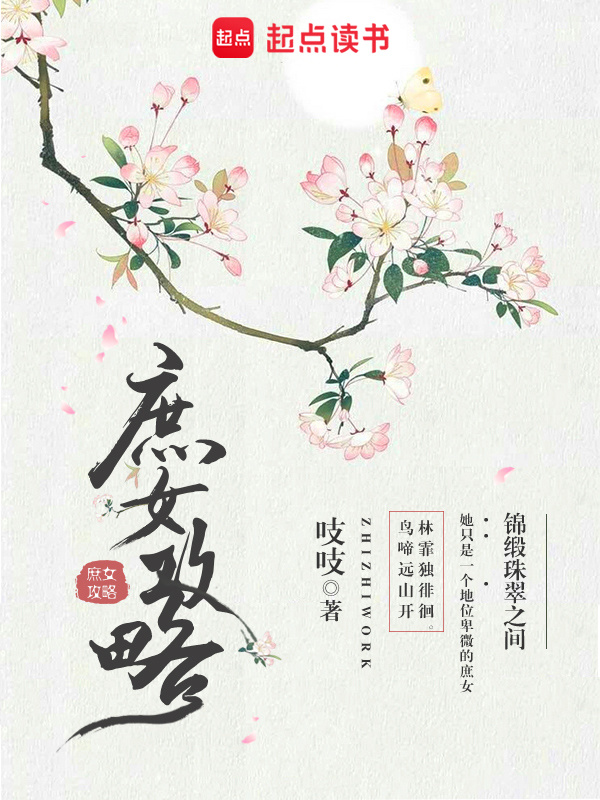 起点
起点读书
庶女攻略
庶女
攻略
锦缎珠翠之间
她只是一个地位卑微的庶女
林霏独徘徊。
鸟啼远山开
ZHIZHIWORK
吱吱◎著